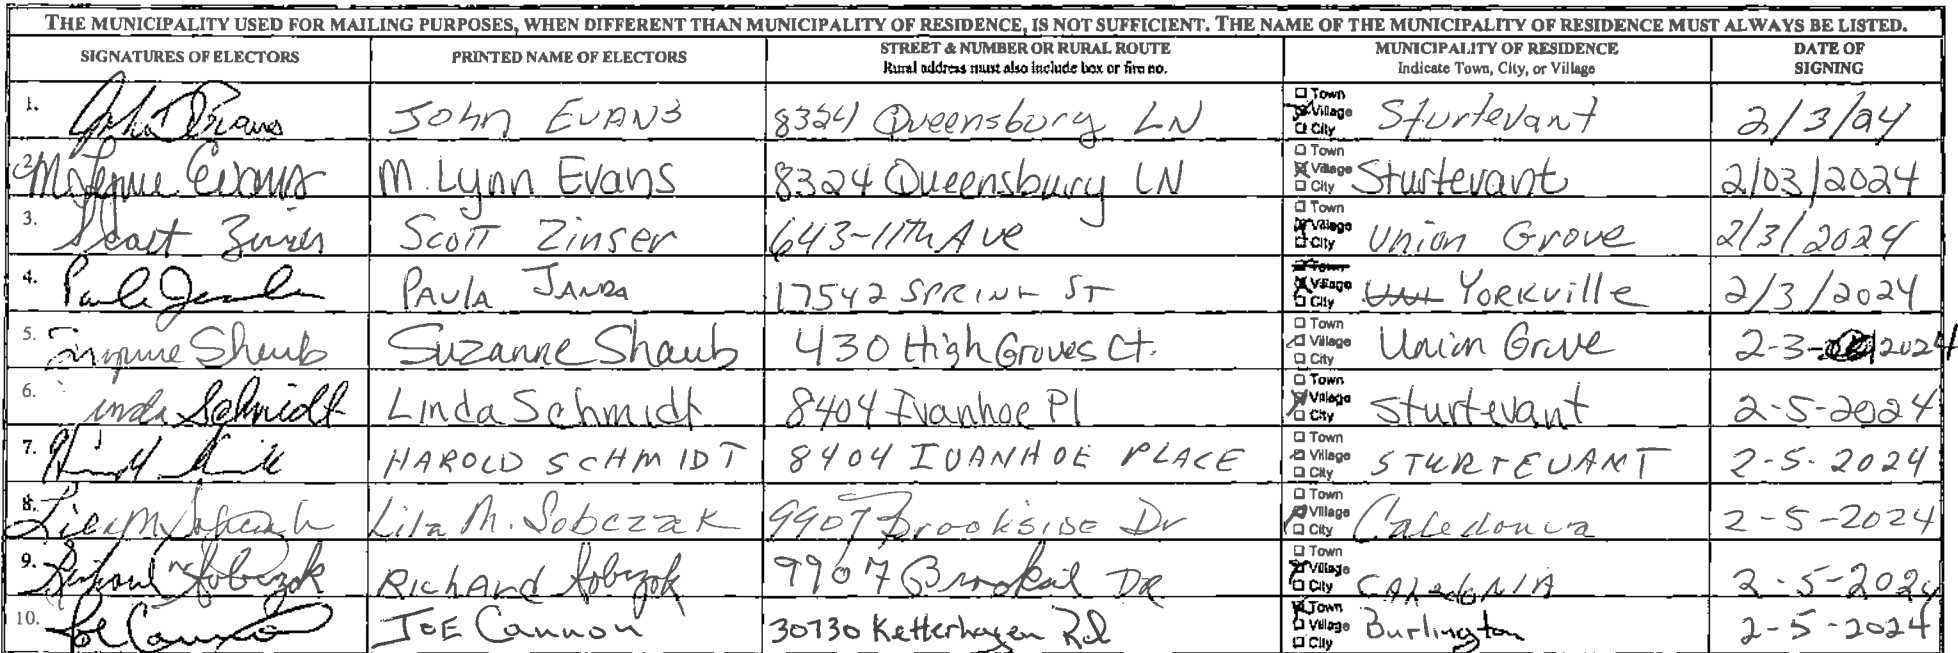 THE MUNICIPALITY USED FOR MAILING PURPOSES, WHEN DIFFERENT THAN MUNICIPALITY OF RESIDENCE, IS NOT SUFFICIENT. THE NAME OF THE MUNICIPALITY OF RESIDENCE MUST ALWAYS BE LISTED.
SIGNATURES OF ELECTORS PRINTED NAME OF ELECTORS STREET & NUMBER OR RURAL ROUTE MUNICIPALITY OF RESIDENCE DATE OF SIGNING
Rural address must also include box or fire no. Indicate Town, City, or Village
1. John D Evans John EVANS 8324 Queensbury LN Town Village City Sturtevant 2/3/24
2. M. Lynn Evans M. Lynn Evans 8324 Queensbury LN Town Village City Sturtevant 2/03/2024
3. Scott Zinser Scott Zinser 643-11th Ave Town Village City Union Grove 2/3/2024
4. Paula Janda PAULA JANDA 17542 SPRING ST Town Village City YORKville 2/3/2024
5. Suzanne Shaub Suzanne Shaub 430 High Groves Ct. Town Village City Union Grove 2-3-2024
6. Linda Schmidt Linda Schmidt 8404 Ivanhoe Pl Town Village City Sturtevant 2-5-2024
7. HAROLD SCHMIDT 8404 IVANHOE PLACE Town Village City STURTEVANT 2-5-2024
8. Lila M Sobczak Lila M. Sobczak 9907 Brookside Dr Town Village City Caledonia 2-5-2024
9. Richard Sobczak RICHARD Sobczak 9907 DR Town Village City CALEDONIA 2-5-2024
10. Joe Cannon JOE Cannon 30730 Ketterhagen Rd Town Village City Burlington 2-5-2024